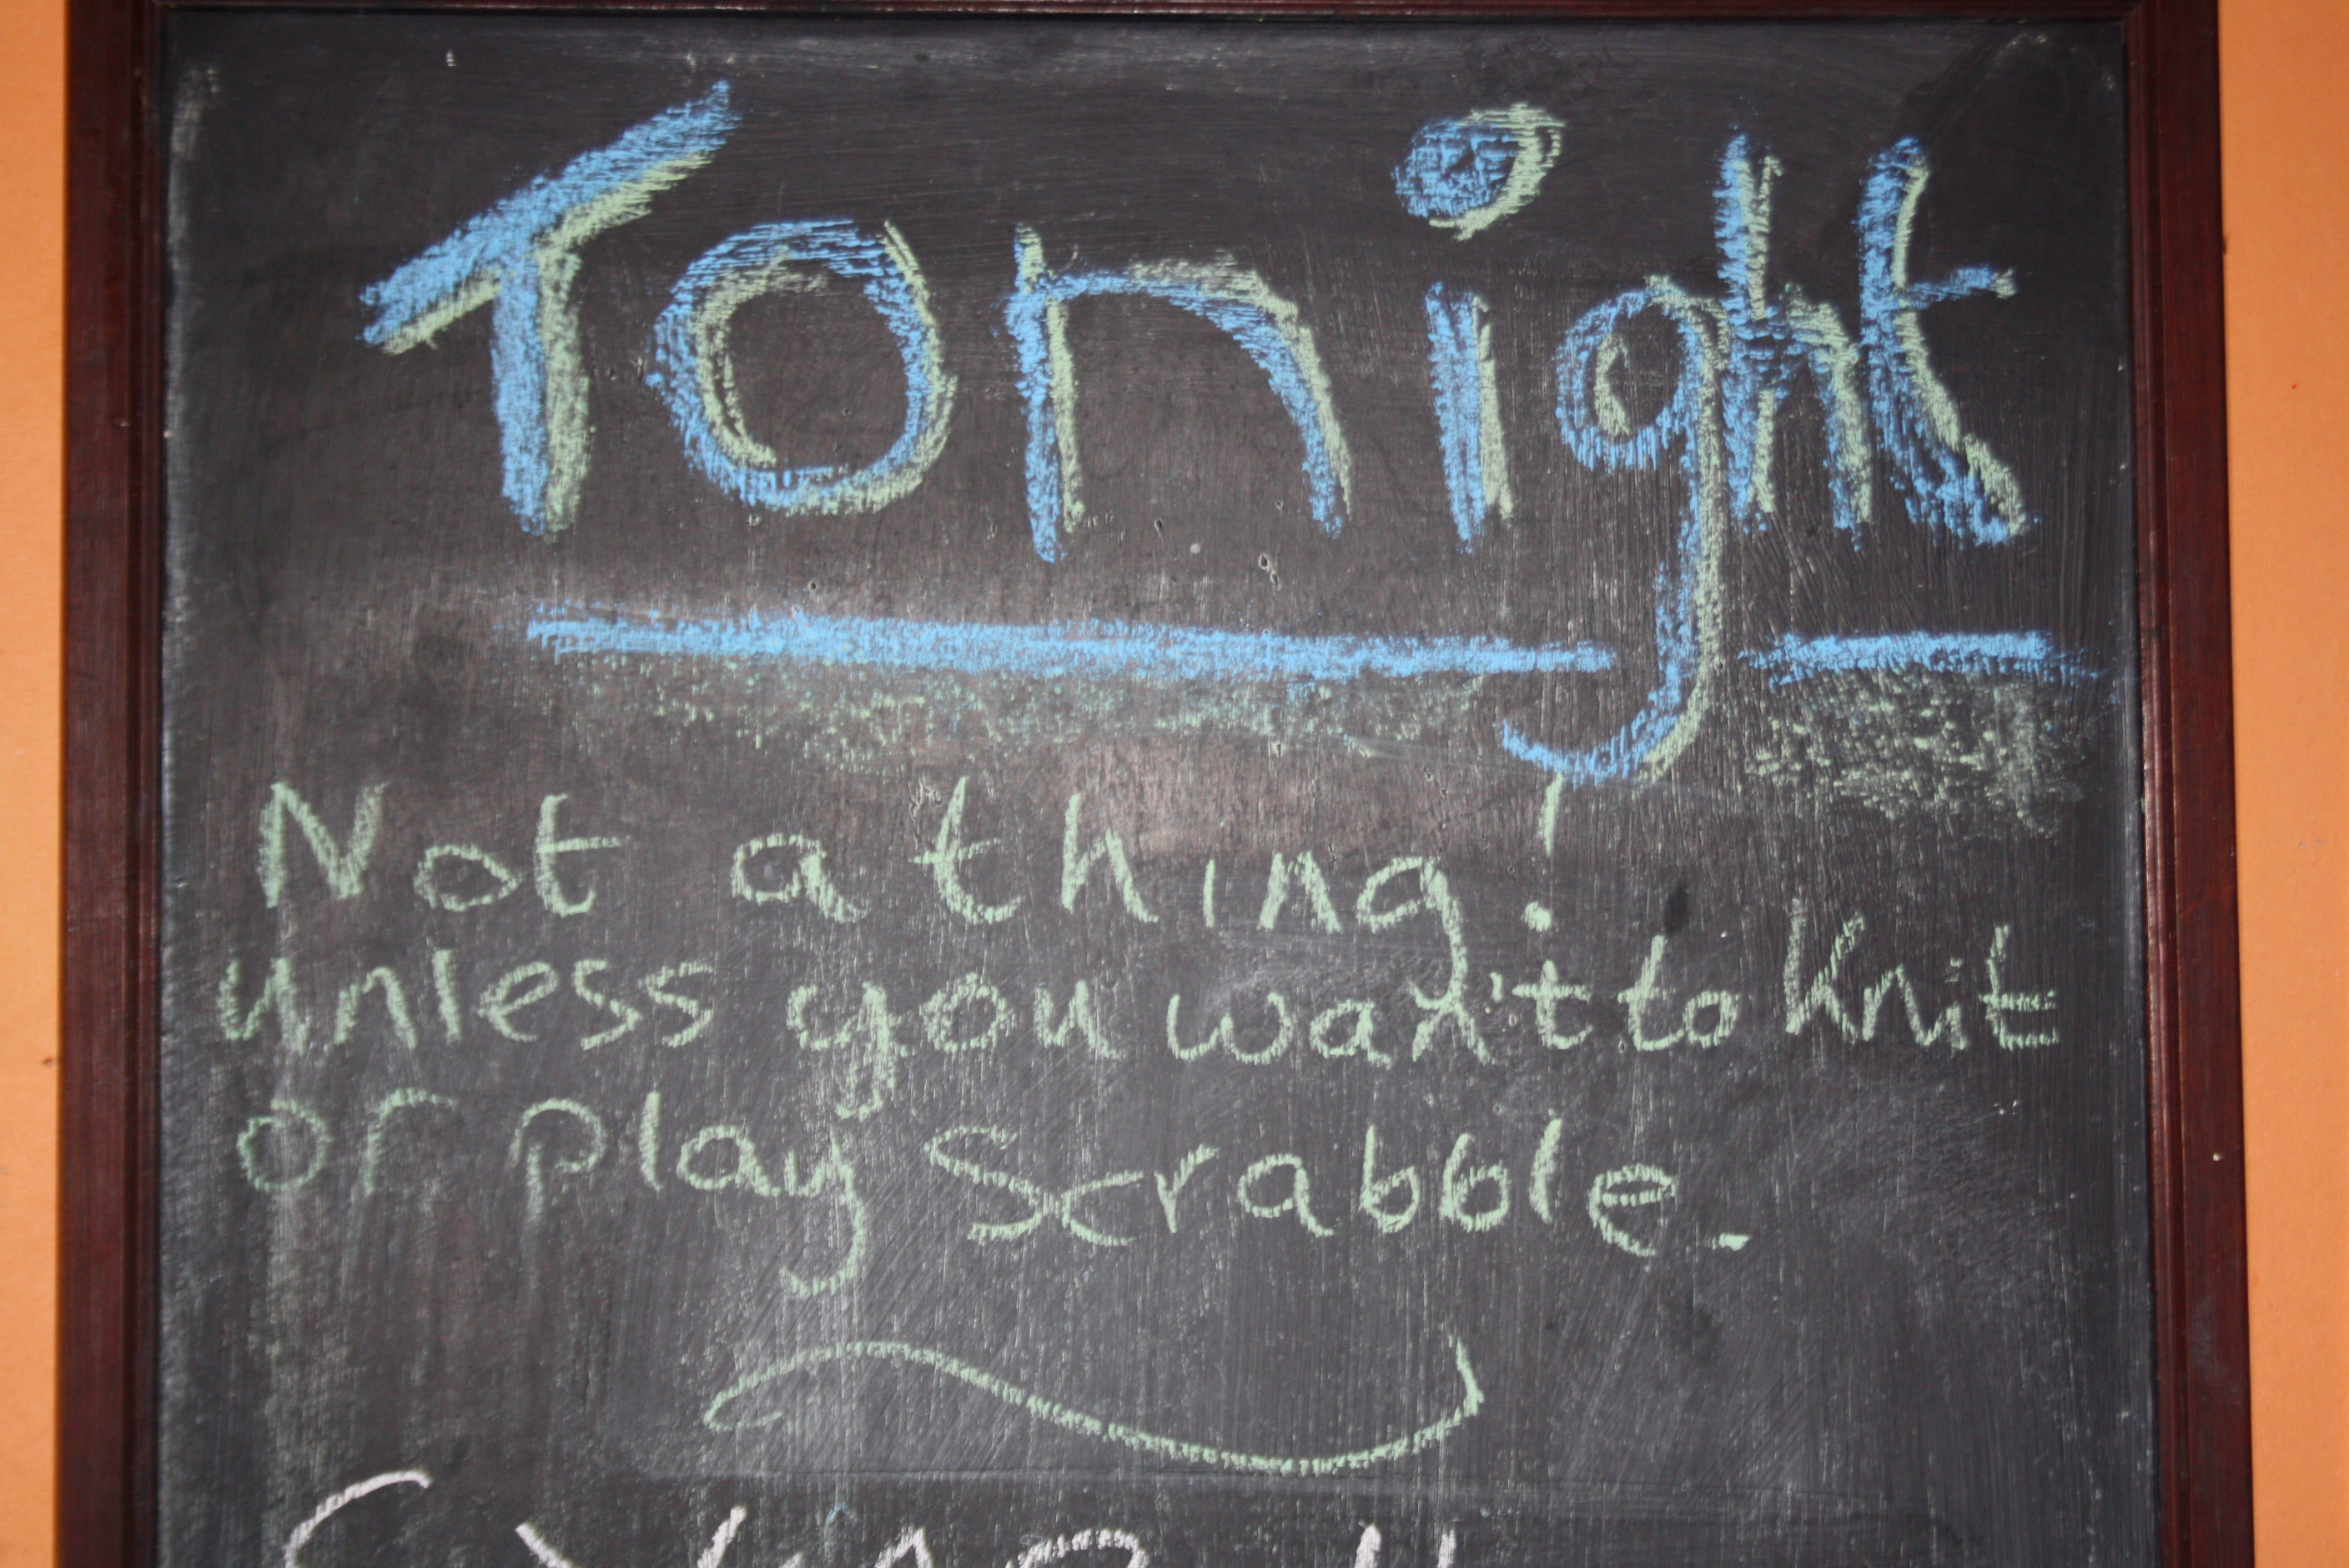 Tonight
Not a thing!
unless you wan't to knit
or play Scrabble.